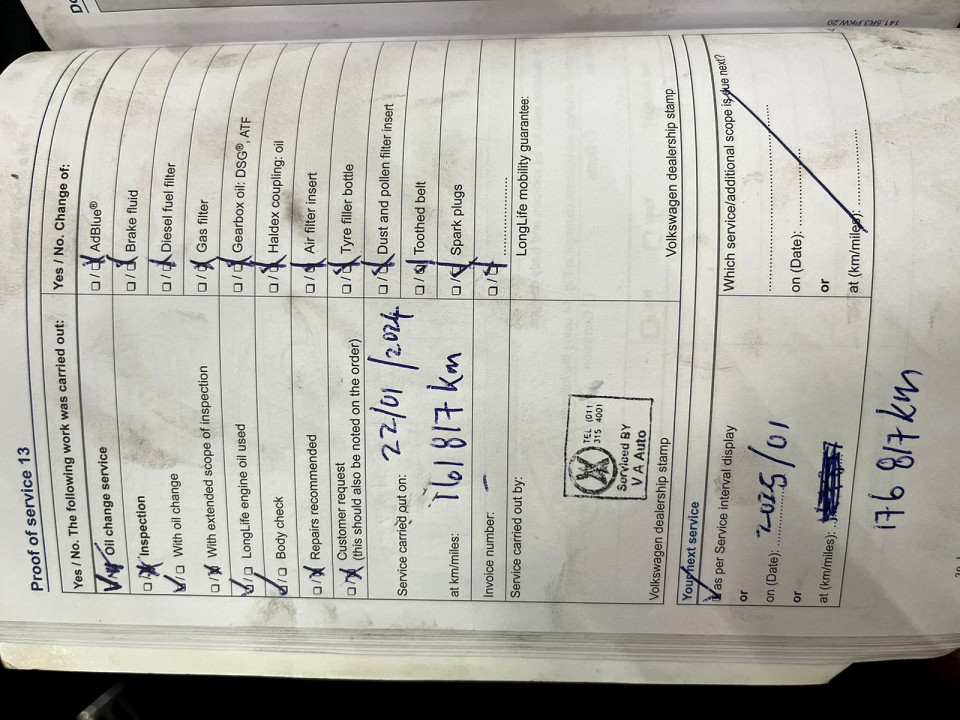 Proof of service 13
Yes / No. The following work was carried out:
Oil change service
Inspection
With oil change
With extended scope of inspection
LongLife engine oil used
Body check
Repairs recommended
Customer request
(this should also be noted on the order)
Service carried out on: 22/01/2024
at km/miles: 161817 km
Invoice number: –
Service carried out by:
TEL (011
315 4001
Serviced BY
V A Auto
Volkswagen dealership stamp
Yes / No. Change of:
AdBlue®
Brake fluid
Diesel fuel filter
Gas filter
Gearbox oil: DSG®, ATF
Haldex coupling: oil
Air filter insert
Tyre filler bottle
Dust and pollen filter insert
Toothed belt
Spark plugs
LongLife mobility guarantee:
Volkswagen dealership stamp
Your next service
as per Service interval display
or
on (Date): 2025/01
or
at (km/miles):
176 817 km
Which service/additional scope is due next?
on (Date):
or
at (km/miles):
141.5R3.PKW.20